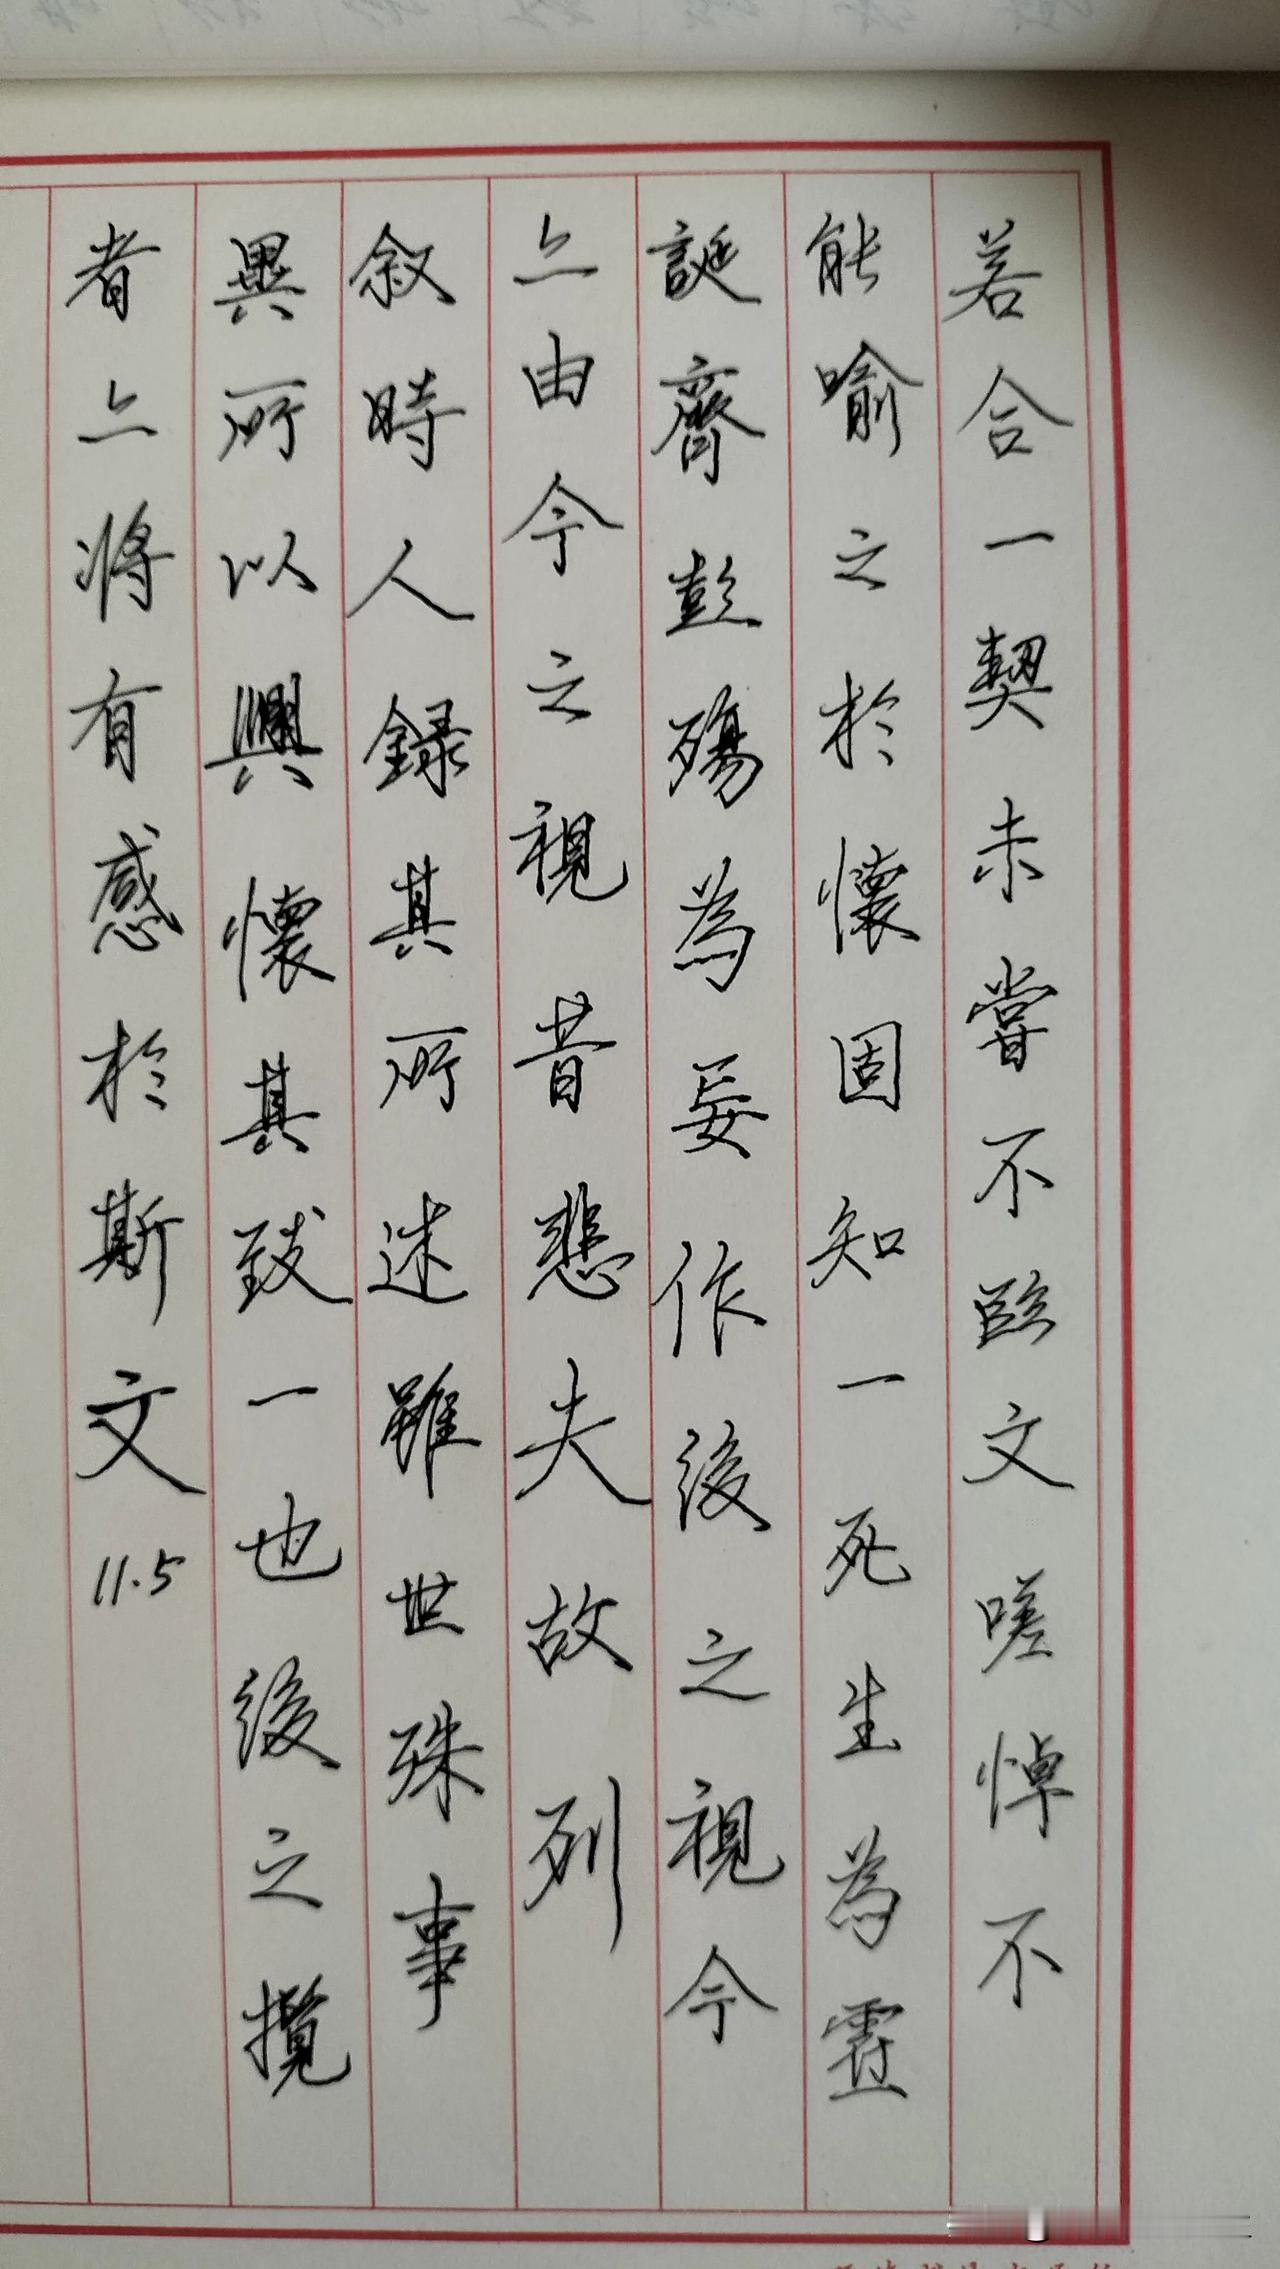 若合一契未嘗不臨文嗟悼不
能喻之於懷固知一死生為虛
誕齊彭殤為妄作後之視今
亦由今之視昔悲夫故列
叙時人錄其所述雖世殊事
異所以興懷其致一也後之攬
者亦將有感於斯文 11.5